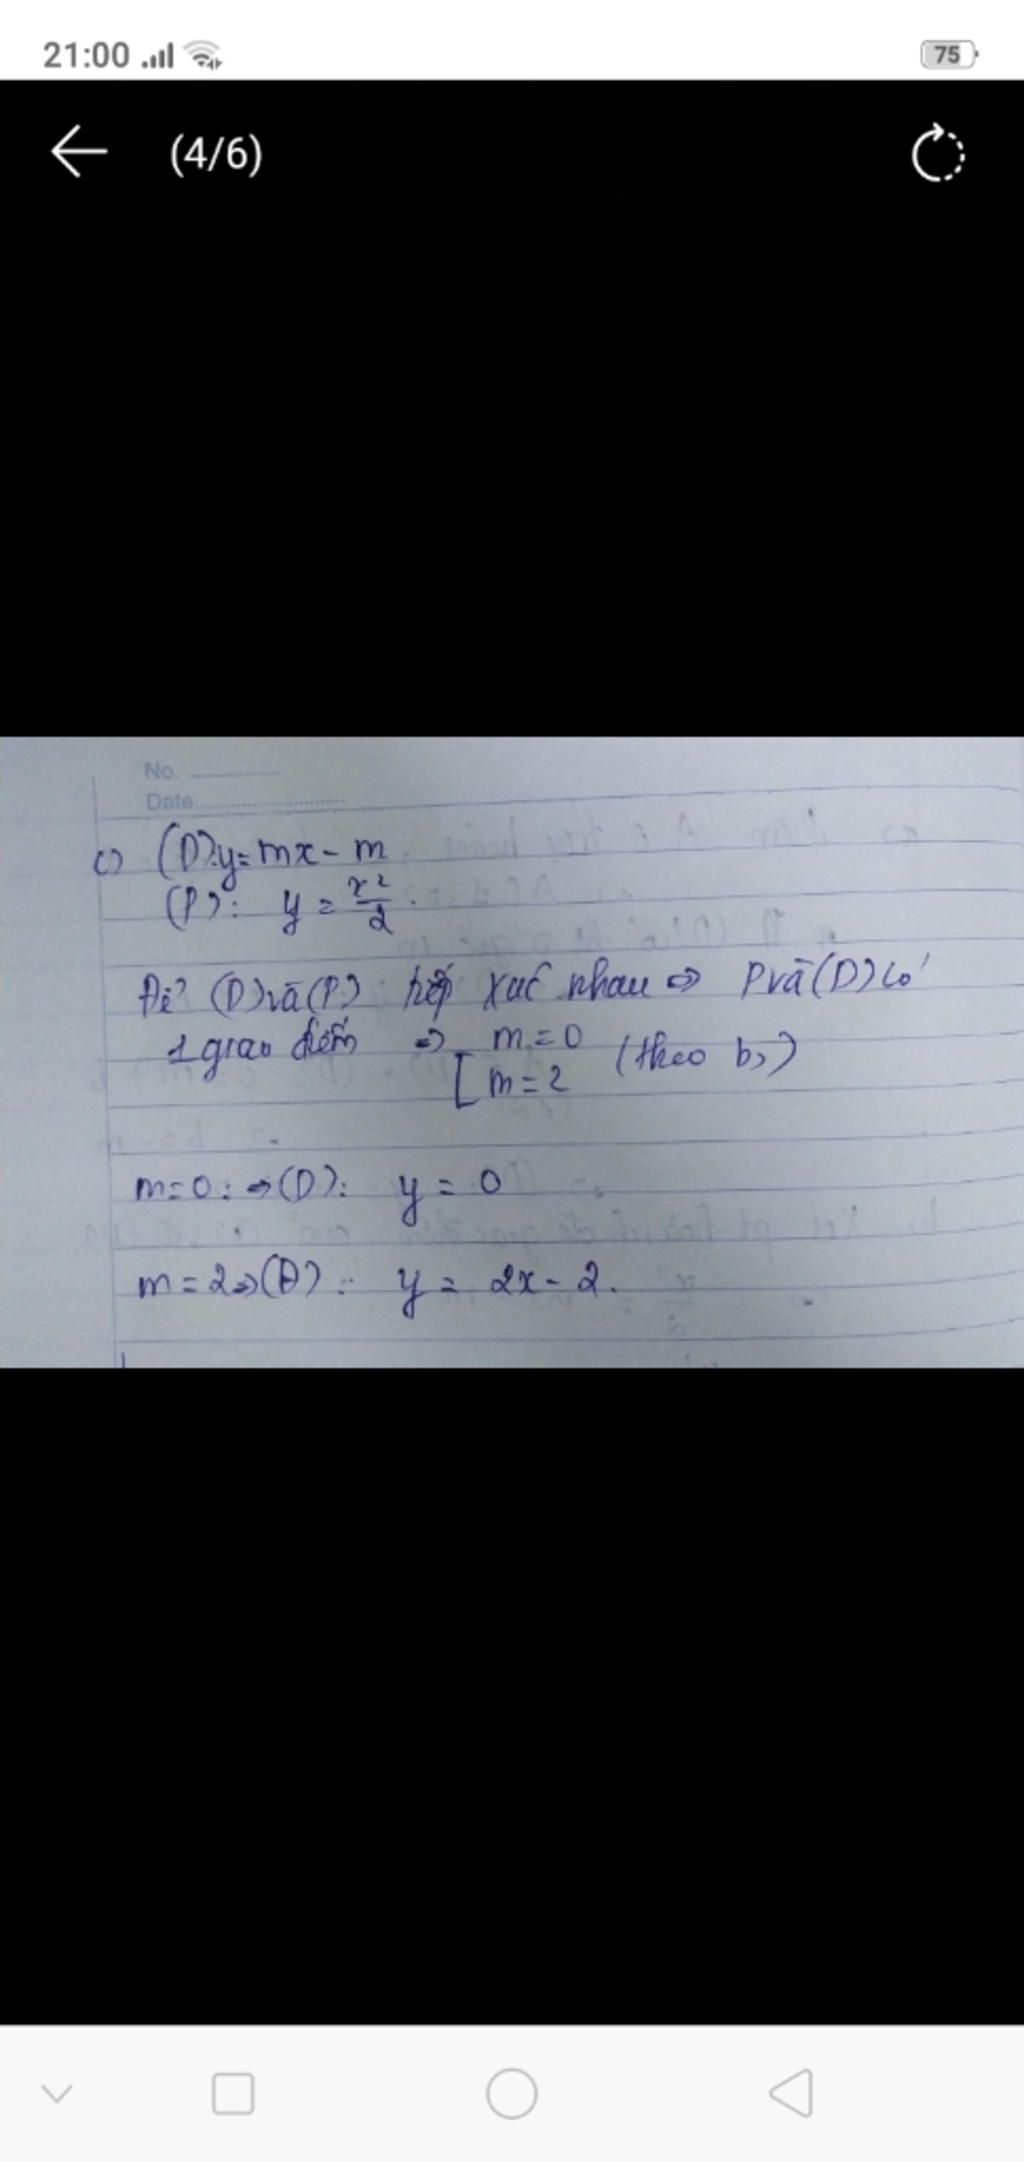 21:00
75
(4/6)
No.
Date
c) (D): y = mx - m
(P): y = x²/2.
Để (D) và (P) tiếp xúc nhau => P và (D) có
1 giao điểm => [ m = 0
m = 2 (theo b,)
m = 0: => (D): y = 0
m = 2 => (D): y = 2x - 2.